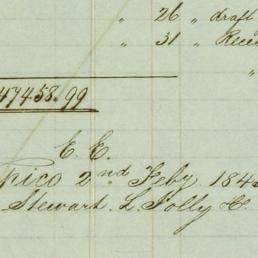 " 26 " draft
" 31 " Rece
"
47458.99
E. E.
pico 2nd Feby. 184
Stewart. L. Jolly &